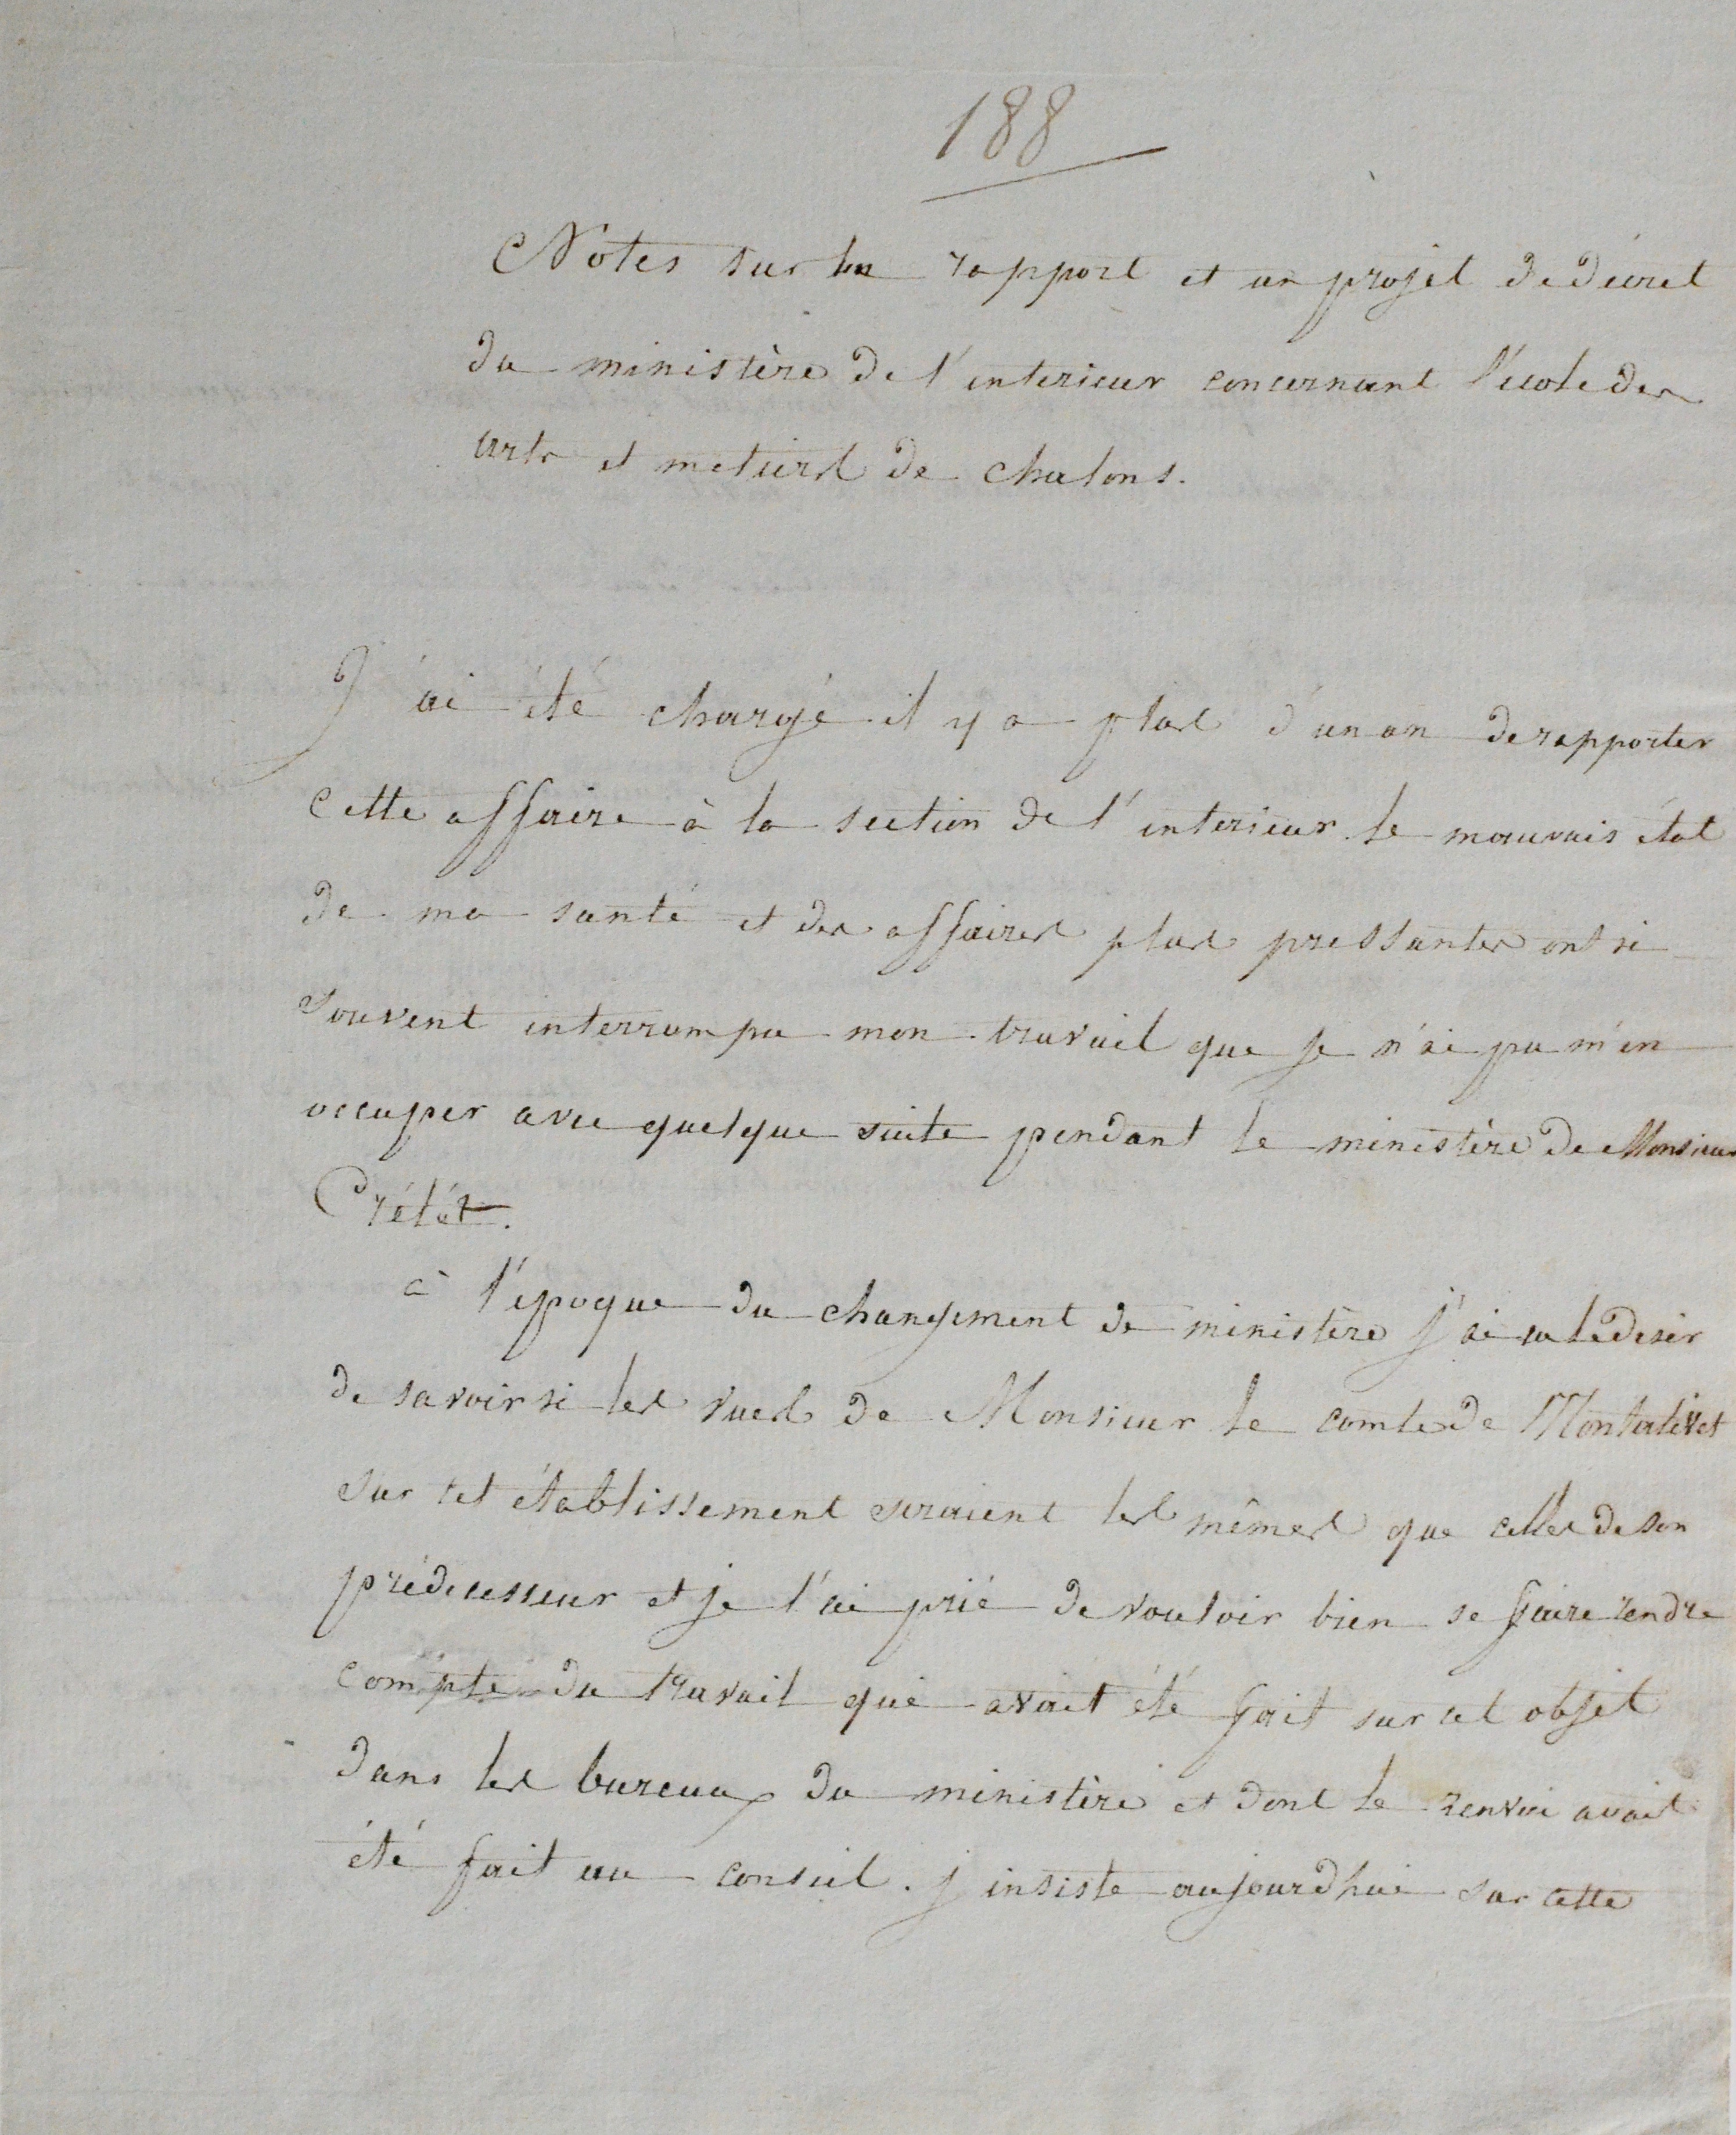 188
Notes sur un rapport et un projet de décret
du ministère de l'interieur concernant l'ecole des
arts et metiers de chalons.
J'ai été chargé il y a plus d'un an de rapporter
cette affaire à la section de l'interieur. le mauvais état
de ma santé et des affaires plus pressantes ont si
souvent interrompu mon travail que je n'ai pu m'en
occuper avec quelque suite pendant le ministère de Monsieur
Crétét.
à l'epoque du changement de ministère j'ai eu le desir
de savoir si les vues de Monsieur le comte de Montalivet
sur cet établissement seraient les mêmes que celles de son
prédecesseur et je l'ai prié de vouloir bien se faire rendre
compte du travail qui avait été fait sur cet objet
dans les bureaux du ministère et dont le renvoi avait
été fait au conseil. j'insiste aujourd'hui sur cette